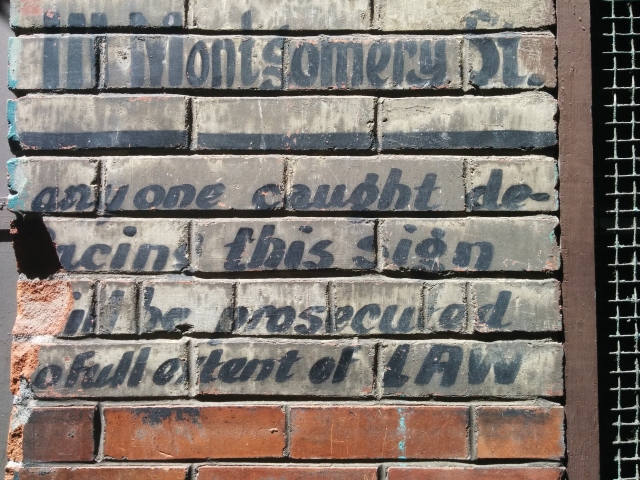 111 Montgomery St.
anyone caught de-
facing this sign
will be prosecuted
to full extent of LAW